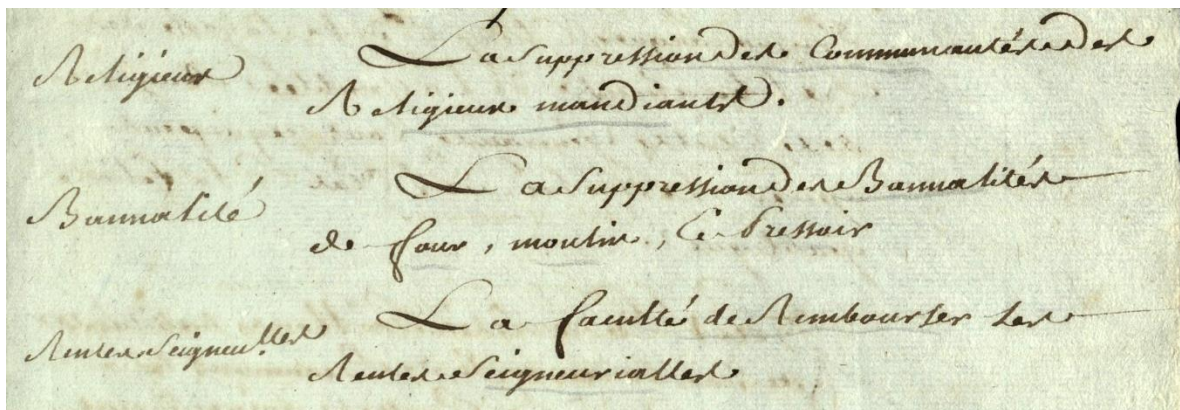 Religieux
La Suppression des Communautés des
Religieux mandiants.
Bannalité
La Suppression des Bannalités
de four, moulin, et Pressoir
Rentes Seigneu.lles
La faculté de Rembourser les
Rentes Seigneurialles